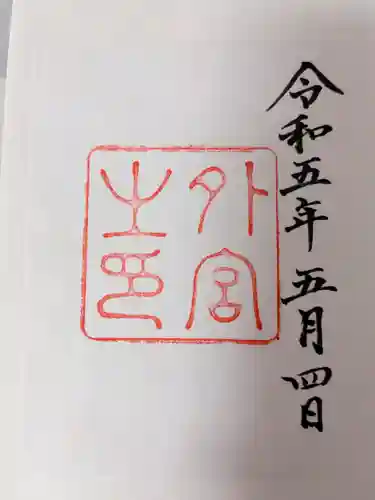 令和五年 五月四日
外宮
之印